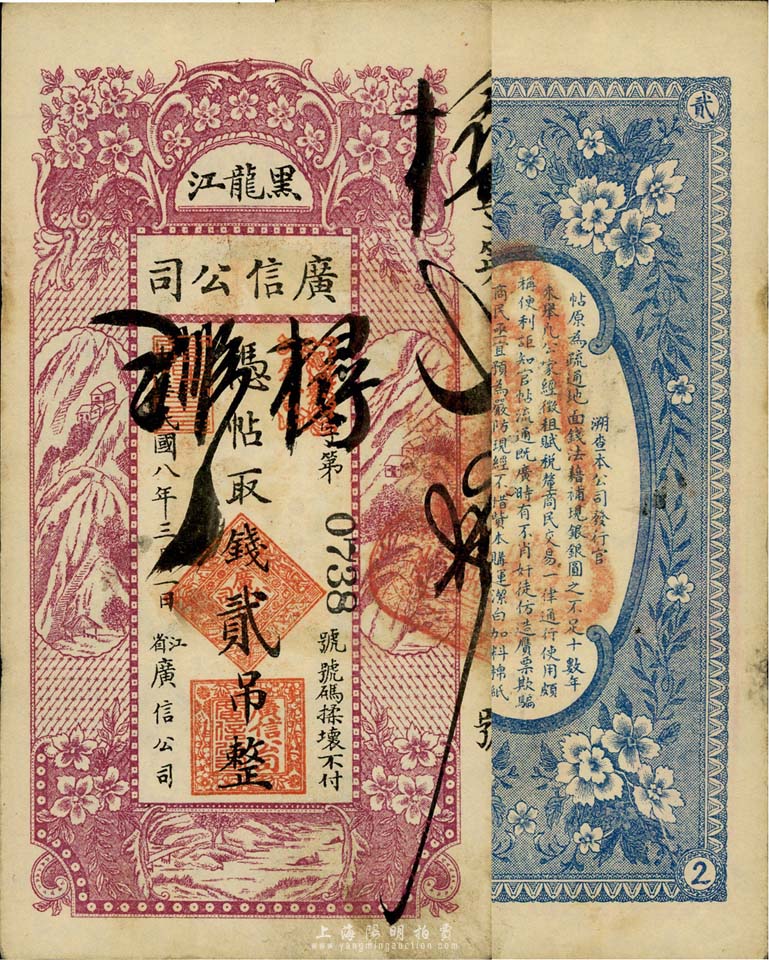 黑龍江
廣信公司
字第0738號號碼揉壞不付
憑帖取錢貳吊整
民國八年三月一日
江省廣信公司
號
貳
溯查本公司發行官
帖原為疏通地面錢法藉補現銀銀圓之不足十數年
來舉凡公家經徵租賦稅幣商民交易一律通行使用頗
稱便利詎知官帖流通既廣時有不肖奸徒仿造贋票欺騙
商民亟宜預為嚴防現經不惜貲本購運潔白加料棉紙
2
上海陽明拍賣
www.yangmingauction.com